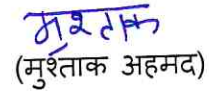 मुश्ताक
(मुर्श्ताक अहमद)